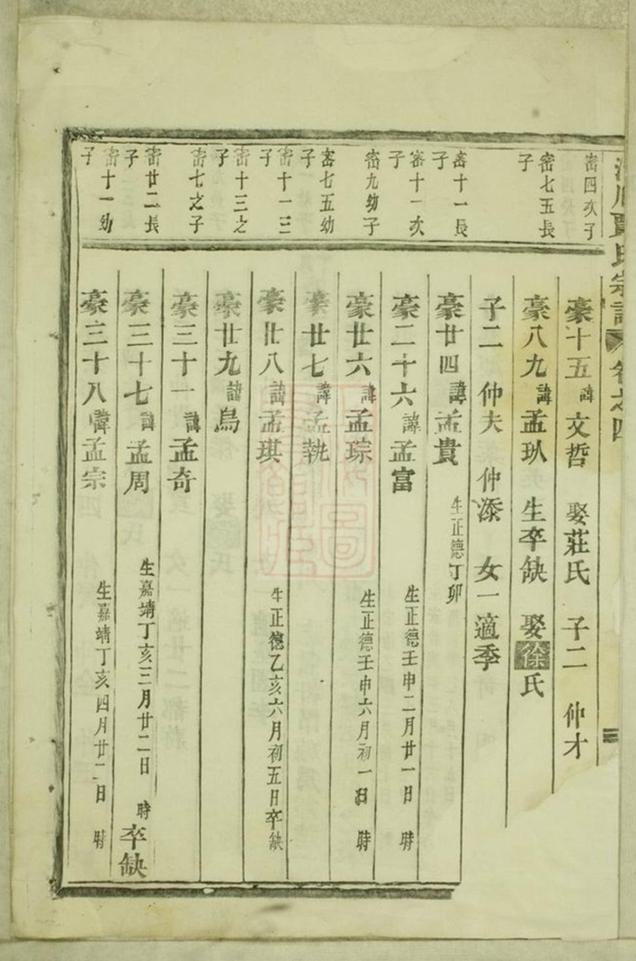 賈氏宗譜 卷之四
密四次子
豪十五諱文哲 娶莊氏 子二 仲才
密七五長子
豪八九諱孟㺬 生卒缺 娶徐氏
子二 仲夫 仲添 女一適季
密十一長子
豪廿四諱孟貴 生正德丁卯
密十一次子
豪二十六諱孟富 生正德壬申二月廿一日 時
密九幼子
豪廿六諱孟琮 生正德壬申六月初一日 時
密七五幼子
豪廿七諱孟執
密十一三子
豪廿八諱孟琪 生正德乙亥六月初五日卒缺
密十三之子
豪廿九諱鳥
密七之子
豪三十一諱孟奇
密廿二長子
豪三十七諱孟周 生嘉靖丁亥三月廿二日 時 卒缺
密十一幼子
豪三十八諱孟宗 生嘉靖丁亥四月廿二日 時